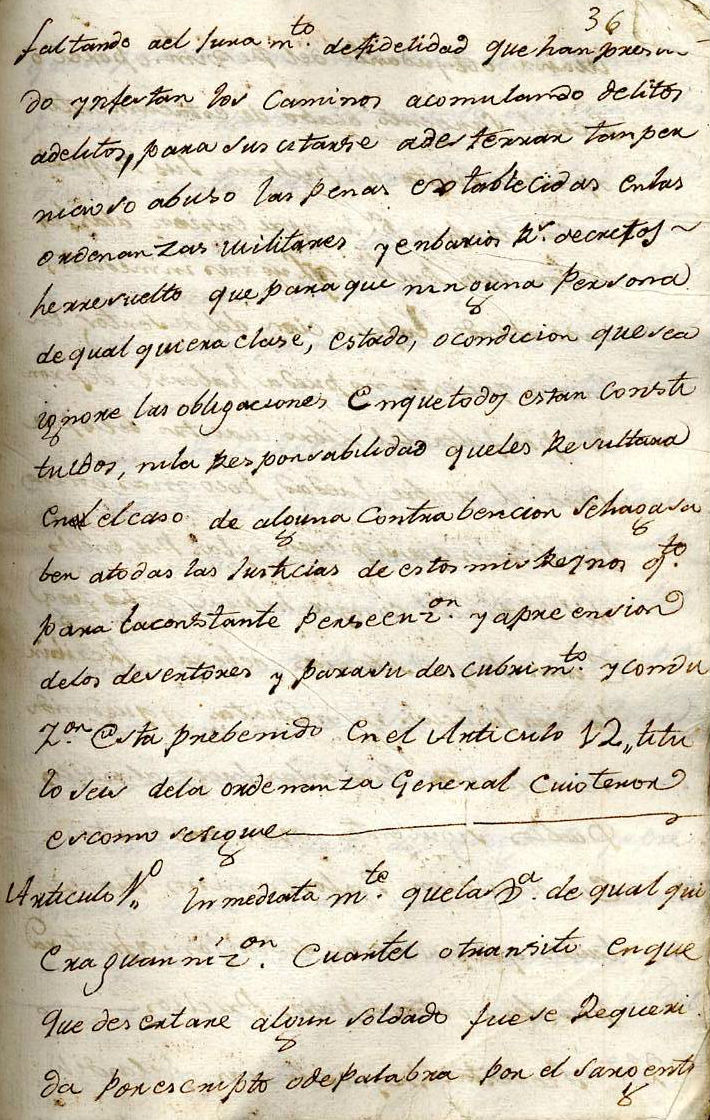 36
faltando ael Juramto. defidelidad que han presta-
do ynfestan los Caminos acomulando delitos
adelitos, para suscitarse adesterrar tan per
nicioso abuso las penas establecidas enlas
ordenanzas militares y enbarios Rs. decretos ~
herresuelto que para que ninguna Persona
de qual quiera clase, estado, o condicion que sea
ignore las obligaciones Enquetodos estan Consti
tuidos, nila Responsabilidad queles Resultara
En el caso de alguna Contrabencion sehaga sa
ber atodas las Justicias de estos mis Reynos qto.
para laconstante persecuzon. y aprension
delos desertores y parasu descubrimto. y condu
zon. Esta prebenido En el Articulo 12,, titu
lo seis dela ordenanza General Cuio tenor
es como sesigue
Articulo 1,,o Inmediatamte. quela Ja. de qual qui
Era guarnizon. Cuartel otransito enque
que desertare algun soldado fuese Requeri
da por escripto ode palabra por el sargento